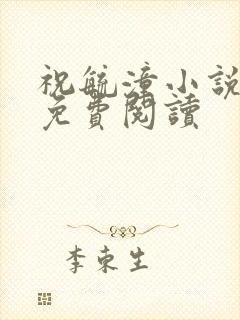 祝毓漳小說
免費閱讀
李東生